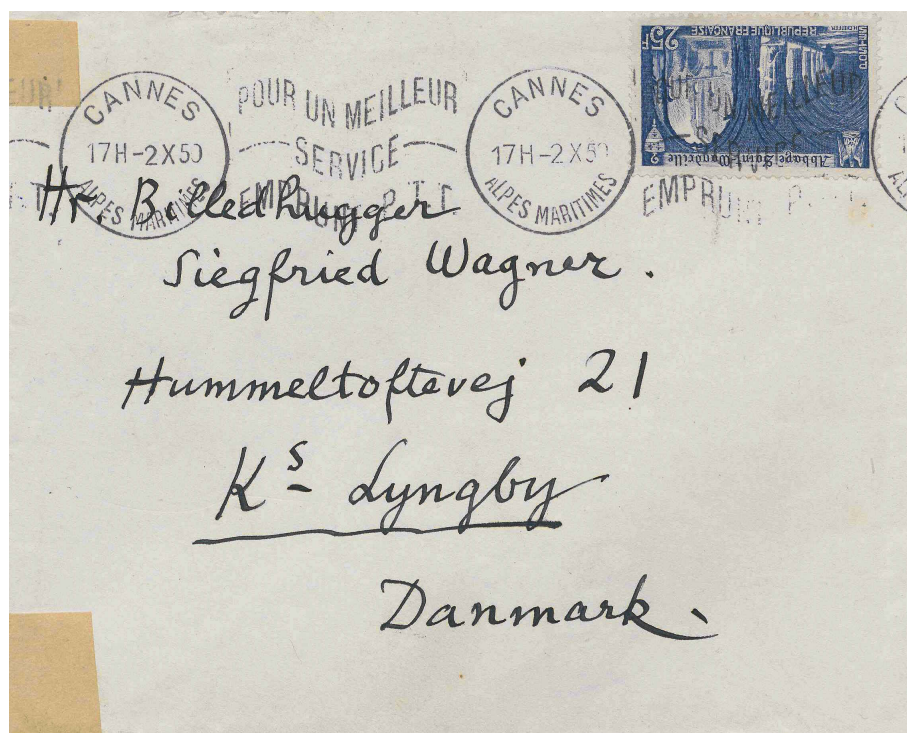 CANNES
17H-2X50
ALPES MARITIMES
POUR UN MEILLEUR
SERVICE
EMPRUNT P.T.T.
CANNES
17H-2X50
ALPES MARITIMES
25F
REPUBLIQUE FRANÇAISE
Abbaye Saint Wandrille
MEILLEUR
EMPRUNT P.
Hr. Billedhugger
Siegfried Wagner.
Hummeltoftevej 21
Ks Lyngby
Danmark.